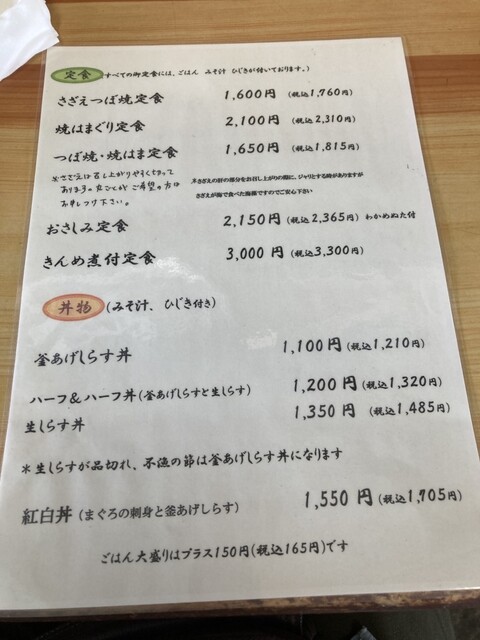 定食 (すべての御定食には、ごはん みそ汁 ひじきが付いております。)
さざえつぼ焼定食 1,600円 (税込1,760円)
焼はまぐり定食 2,100円 (税込2,310円)
つぼ焼・焼はま定食 1,650円 (税込1,815円)
※さざえは召し上がりやすく切って
おります。丸ごとが ご希望の方は
お申しつけ下さい。
※さざえの肝の部分をお召し上がりの際に、ジャリとする時がありますが
さざえが海で食べた海藻ですのでご安心下さい
おさしみ定食 2,150円 (税込2,365円) わかめぬた付
きんめ煮付定食 3,000円 (税込3,300円)
丼物 (みそ汁、ひじき付き)
釜あげしらす丼 1,100円 (税込1,210円)
ハーフ&ハーフ丼 (釜あげしらすと生しらす) 1,200円 (税込1,320円)
生しらす丼 1,350円 (税込1,485円)
*生しらすが品切れ、不漁の節は釜あげしらす丼になります
紅白丼 (まぐろの刺身と釜あげしらす) 1,550円 (税込1,705円)
ごはん大盛りはプラス150円(税込165円)です